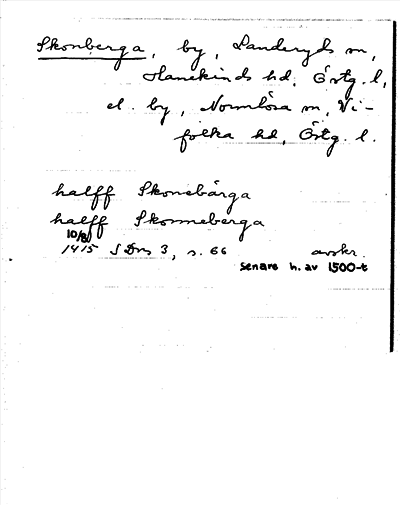 Skonberga, by, Landeryds sn,
Hanekinds hd, Östg. l,
el. by, Normlösa sn, Vi-
folka hd, Östg. l.
halff Skonebärga
halff Skonneberga
10/8
1415 SDns 3, s. 66 avskr.
senare h. av 1500-t